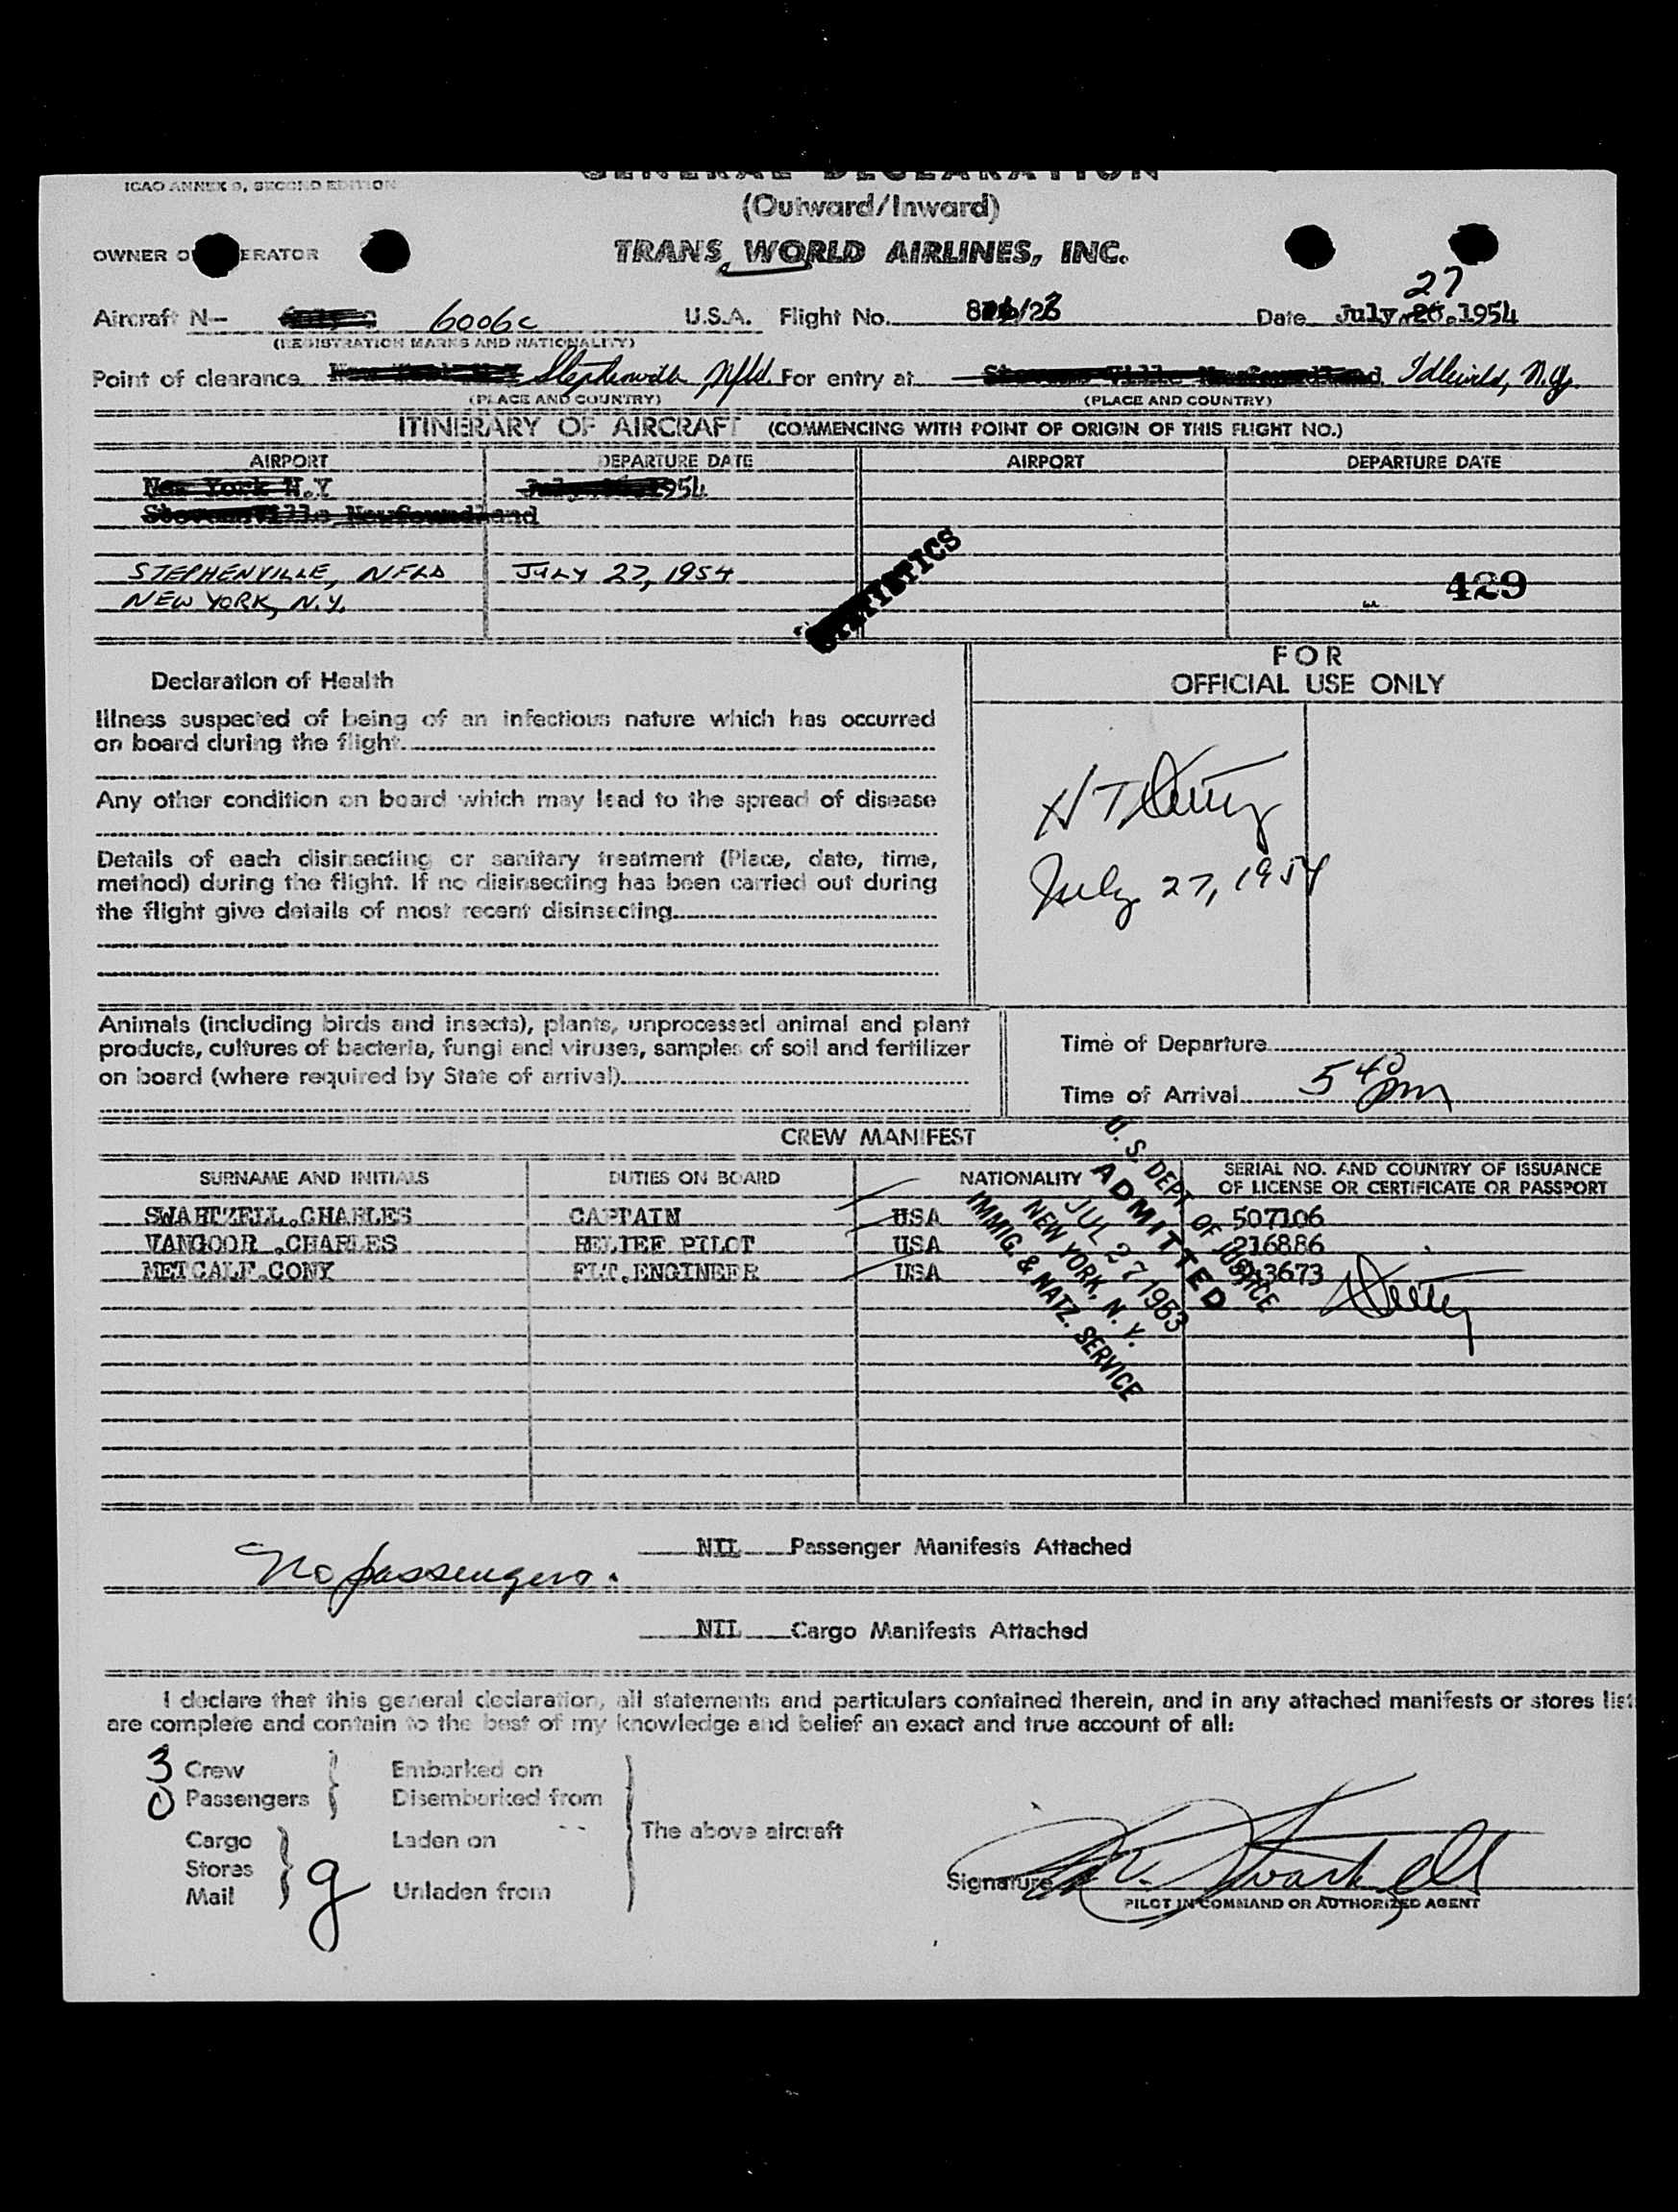 ICAO ANNEX 9, SECOND EDITION
GENERAL DECLARATION
(Outward/Inward)
OWNER O ERATOR
TRANS WORLD AIRLINES, INC.
27
Aircraft N- 6006c U.S.A. Flight No. Date July 1954
(REGISTRATION MARKS AND NATIONALITY)
Point of clearance Stephenville Nfld. For entry at Idlewild, N.Y.
(PLACE AND COUNTRY) (PLACE AND COUNTRY)
ITINERARY OF AIRCRAFT (COMMENCING WITH POINT OF ORIGIN OF THIS FLIGHT NO.)
AIRPORT DEPARTURE DATE AIRPORT DEPARTURE DATE
New York N.Y 1954
Newfoundland
STATISTICS
STEPHENVILLE, NFLD JULY 27, 1954 429
NEW YORK, N.Y.
FOR
Declaration of Health OFFICIAL USE ONLY
Illness suspected of being of an infectious nature which has occurred
on board during the flight.
Any other condition on board which may lead to the spread of disease
Details of each disinsecting or sanitary treatment (Place, date, time,
method) during the flight. If no disinsecting has been carried out during
the flight give details of most recent disinsecting
July 27, 1954
Animals (including birds and insects), plants, unprocessed animal and plant
products, cultures of bacteria, fungi and viruses, samples of soil and fertilizer
on board (where required by State of arrival).
Time of Departure
Time of Arrival 5 40 pm
CREW MANIFEST
SURNAME AND INITIALS DUTIES ON BOARD NATIONALITY SERIAL NO. AND COUNTRY OF ISSUANCE
OF LICENSE OR CERTIFICATE OR PASSPORT
SWARTZELL.CHARLES CAPTAIN USA 507106
VANGOOR .CHARLES RELIEF PILOT USA 216886
METCALF.CONY FLT.ENGINEER USA
U. S. DEPT. OF JUSTICE
ADMITTED
JUL 27 1953
NEW YORK, N. Y.
IMMIG. & NATZ. SERVICE
NIL Passenger Manifests Attached
No passengers.
NIL Cargo Manifests Attached
I declare that this general declaration, all statements and particulars contained therein, and in any attached manifests or stores list
are complete and contain to the best of my knowledge and belief an exact and true account of all:
3 Crew Embarked on
0 Passengers Disembarked from
Cargo Laden on The above aircraft
Stores
Mail Unladen from
Signature
PILOT IN COMMAND OR AUTHORIZED AGENT